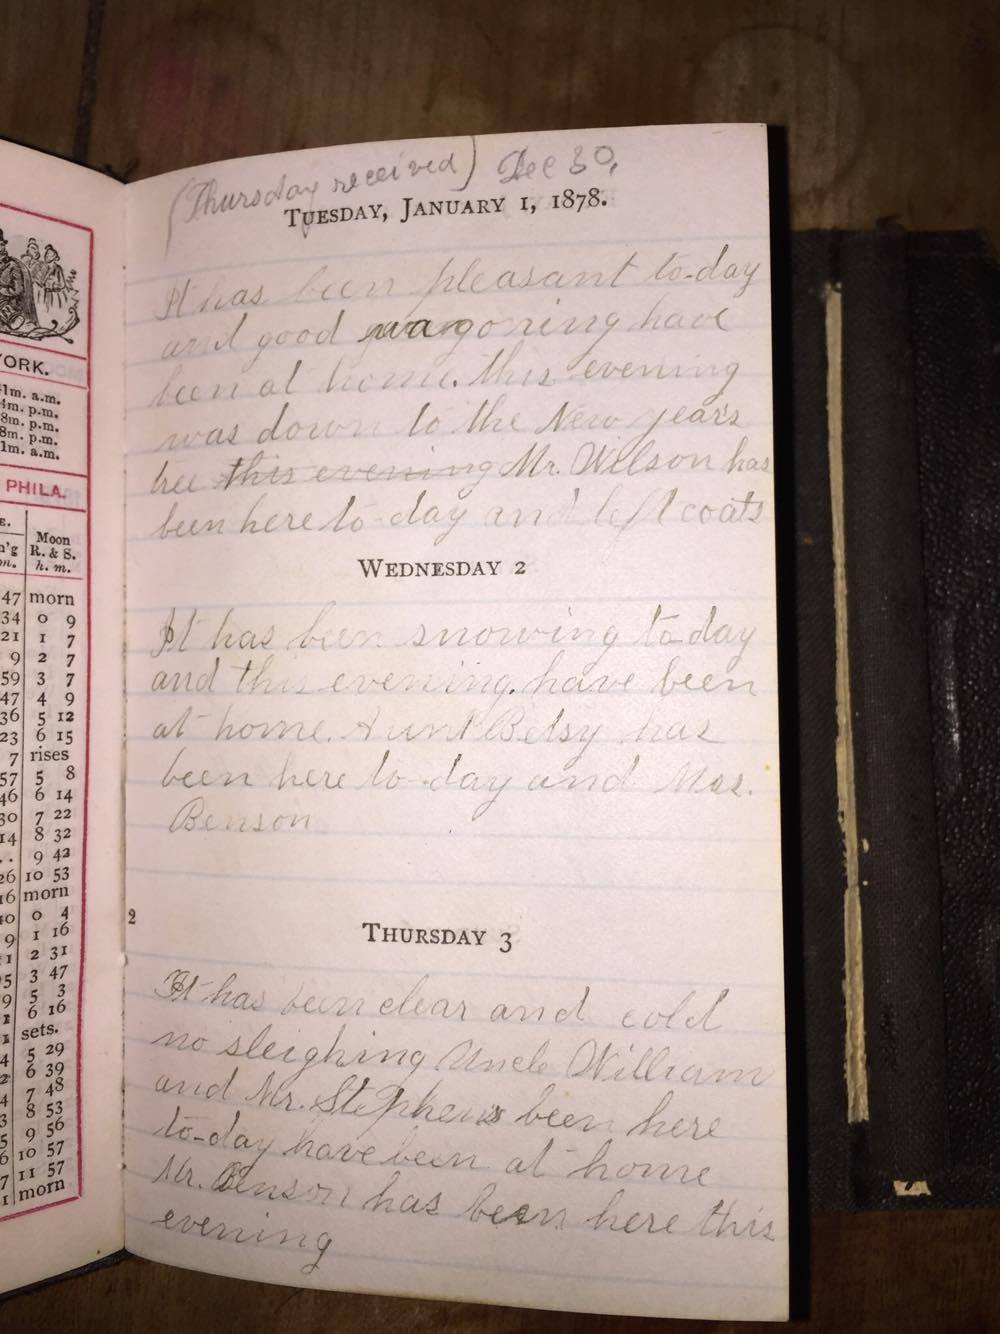 YORK.
1m. a.m.
4m. p.m.
8m. p.m.
8m. p.m.
1m. a.m.
PHILA.
Moon
R. & S.
h. m.
47 morn
34 0 9
21 1 7
9 2 7
59 3 7
47 4 9
36 5 12
23 6 15
7 rises
57 5 8
46 6 14
30 7 22
14 8 32
. . 9 42
26 10 53
16 morn
40 0 4
9 1 16
1 2 31
5 3 47
9 5 3
1 6 16
1 sets.
4 5 29
2 6 39
4 7 48
3 8 53
5 9 56
6 10 57
7 11 57
1 morn
(Thursday received) Dec 30,
TUESDAY, JANUARY 1, 1878.
It has been pleasant to-day
and good wagoning have
been at home. this evening
was down to the New years
tree this evening Mr. Wilson has
been here to-day and left coats
WEDNESDAY 2
It has been snowing to day
and this evening. have been
at home. Aunt Betsy has
been here to-day and Mrs.
Benson
2
THURSDAY 3
It has been clear and cold
no sleighing Uncle William
and Mr. Stephens been here
to-day have been at home
Mr. Benson has been here this
evening